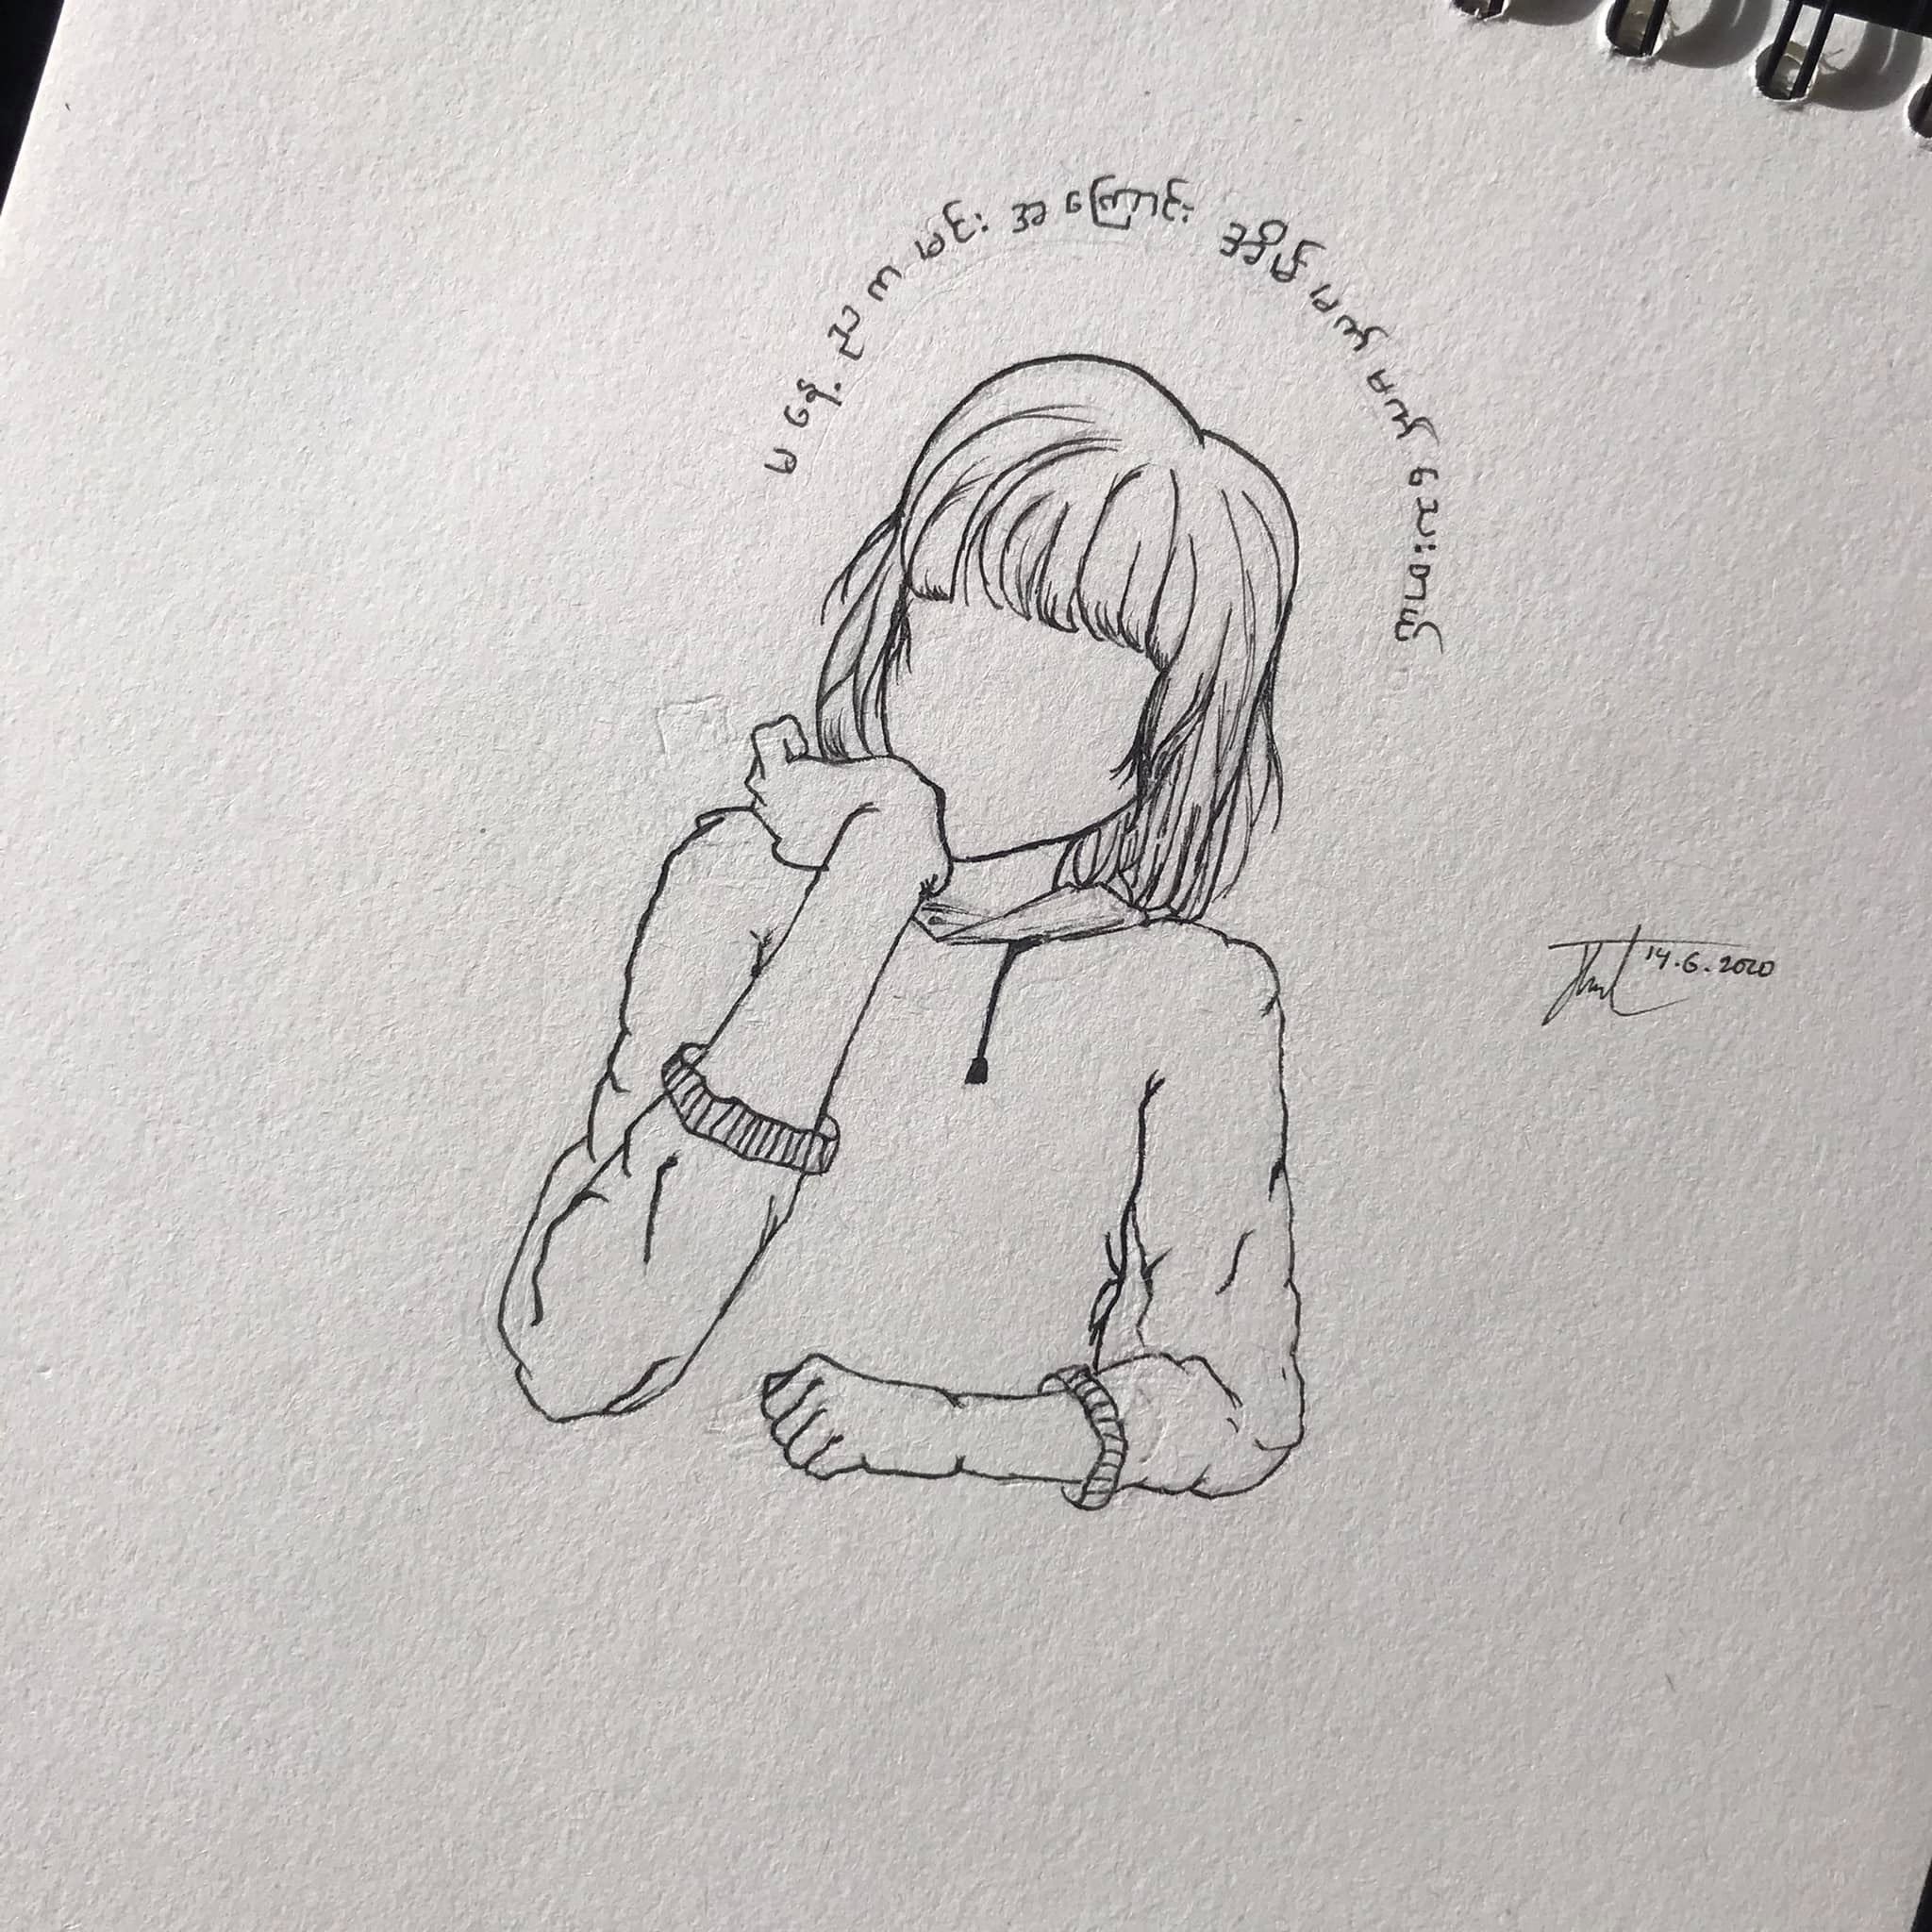 မနေ့ညက မင်းအကြောင်း အိပ်မက် မက်သေးတယ်
14.6.2020